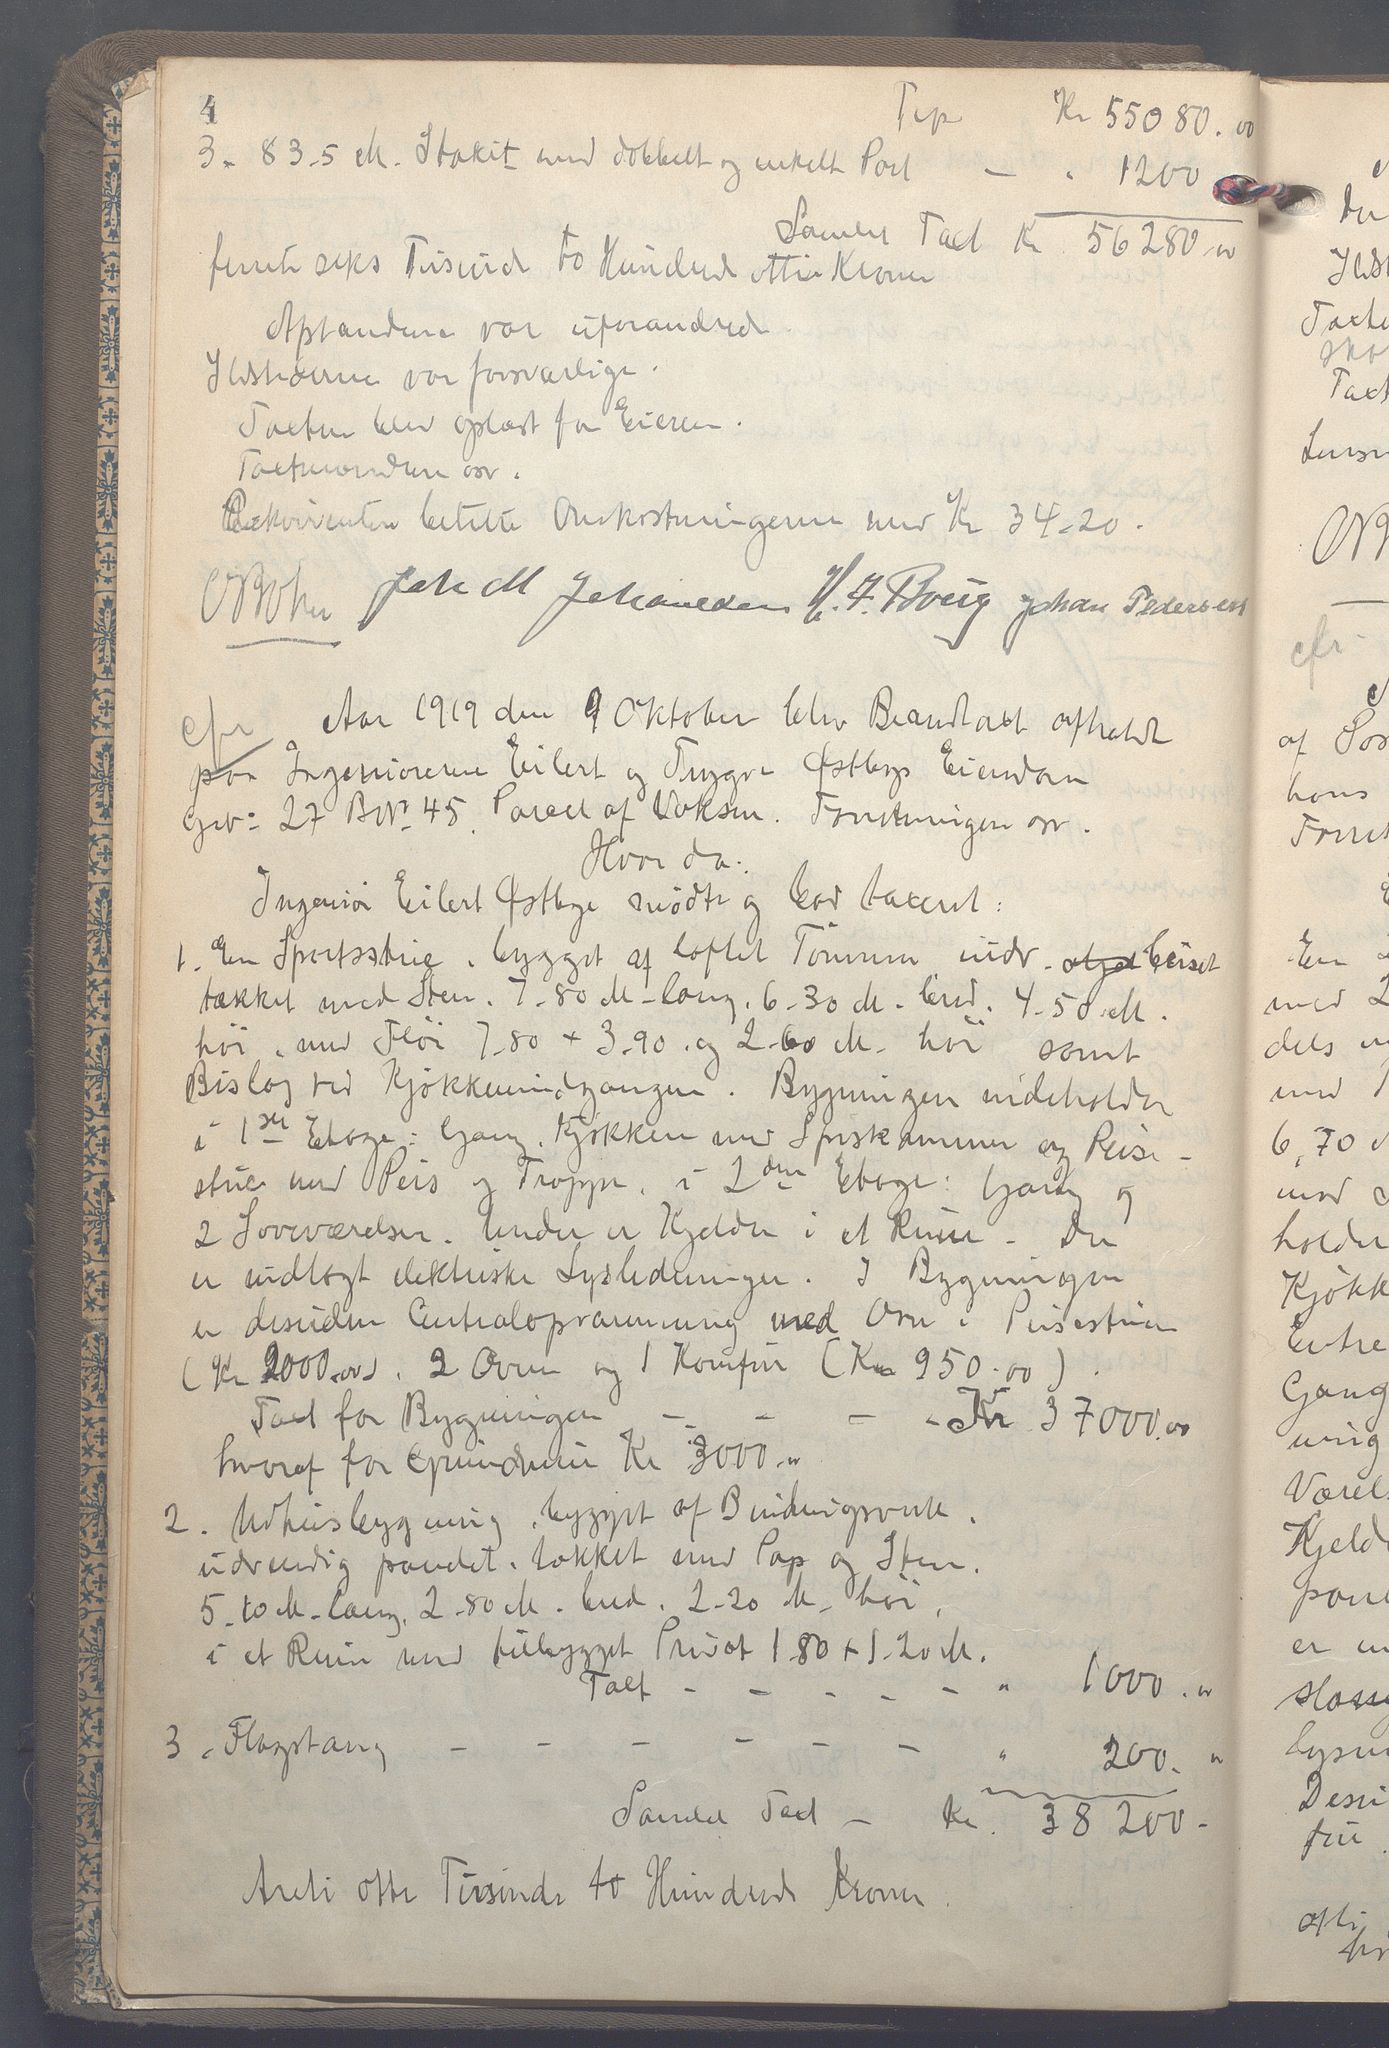 4
Tsp Kr 55080.00
3. 83.5 M. Stakit med dobbelt og enkelt Port — " 1200
Samlet Taxt Kr 56280.00
femti seks Tusinde to Hundrede otti Kroner
Afstandene var uforandred.
Ildstederne var forsvarlige.
Taxten blev oplæst for Eieren.
Taxtmændene osv.
Rekvirenten betalte Omkostningerne med Kr 34.20.
Joh M Johanesen H. F. Bouig Johan Pedersen
cfr
Aar 1919 den 9 Oktober blev Brandtaxt afholdt
paa Ingeniørerne Eilert og Trygve Østbyes Eiendom
Gno: 27 BNo 45. Parcel af Voksen. Forretningen osv.
Hvor da:
Ingeniør Eilert Østbye mødte og blev taxeret:
1. En Sportsstue, bygget af laftet Tømmer udv. beiset
tækket med Sten. 7.80 M. lang. 6.30 M. bred. 4.50 M.
høi, med Fløi 7.80 + 3.90. og 2.60 M. høi samt
Bislag ved Kjøkkenindgangen. Bygningen indeholder
i 1ste Etage: Gang, Kjøkken med Spiskammer og Peise-
stue med Peis og Trappe, i 2den Etage: Gang og
2 Soveværelser. Under er Kjelder i et Rum. Der
er indlagt elektriske Lysledninger. I Bygningen
er desuden Centralopvarmning med Ovn i Peisestuen
(Kr 2000.00). 2 Ovne og 1 Komfur (Kr 950.00).
Taxt for Bygningen — — — - Kr 37000.00
hvoraf for Grundmur Kr 3000.00
2. Udhusbygning, bygget af Bindingsverk,
udvendig panelet. tækket med Pap og Sten.
5.10 M. lang, 2.80 M. bred. 2.20 M. høi,
i et Rum med tilbygget Privat 1.80 + 1.20 M.
Taxt - - - - - " 1000.00
3. Flagstang - - - - - - " 200. "
Samlet Taxt — Kr. 38200.-
Tretti otte Tusinde to Hundrede Kroner.